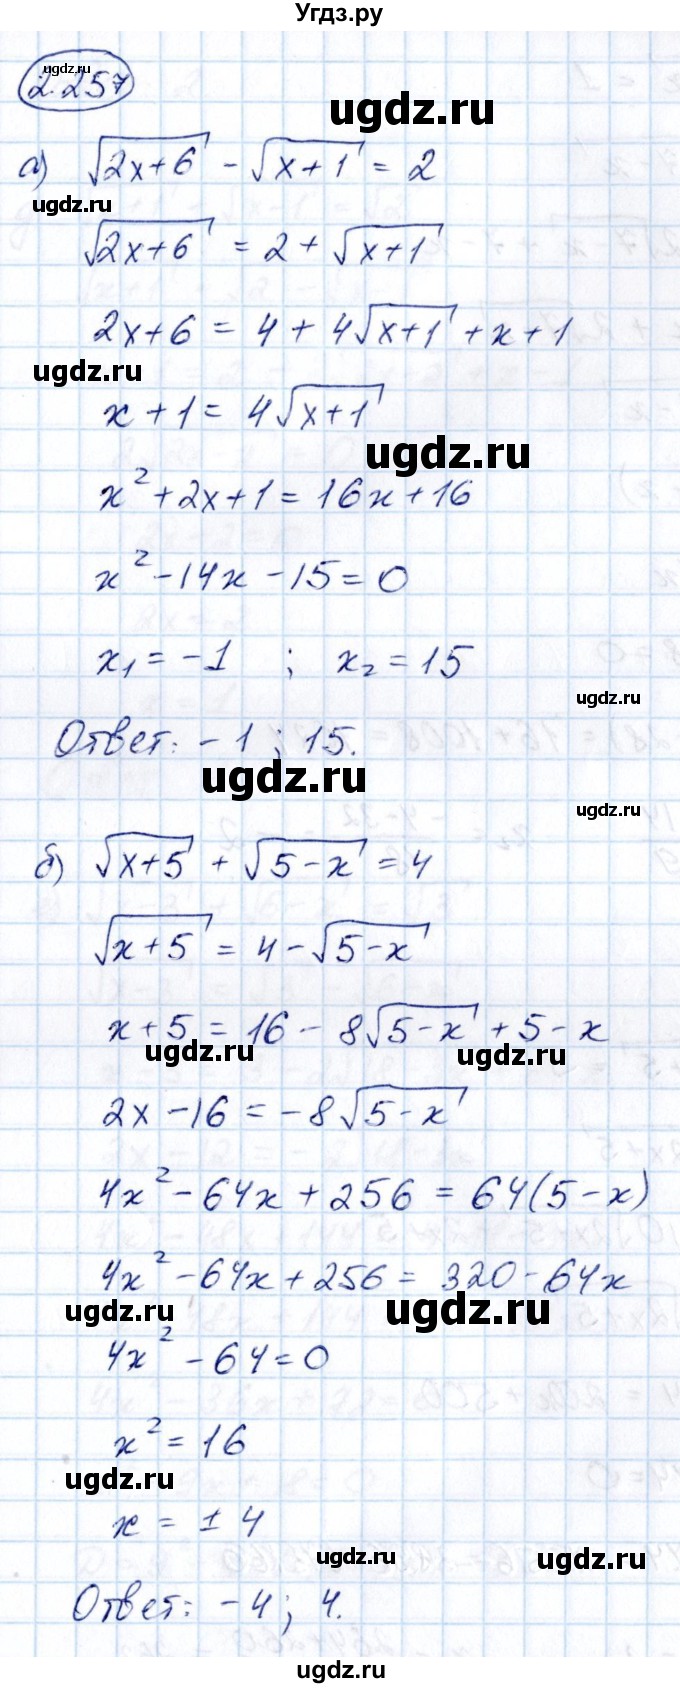 Угдз.ру
ugdz.ru
2.257
ugdz.ru
а) √(2x+6) - √(x+1) = 2
ugdz.ru
√(2x+6) = 2 + √(x+1)
2x+6 = 4 + 4√(x+1) + x + 1
ugdz.ru
x + 1 = 4√(x+1)
ugdz.ru
x² + 2x + 1 = 16x + 16
x² - 14x - 15 = 0
x₁ = -1 ; x₂ = 15
ugdz.ru
Ответ: -1 ; 15.
ugdz.ru
ugdz.ru
б) √(x+5) + √(5-x) = 4
√(x+5) = 4 - √(5-x)
x + 5 = 16 - 8√(5-x) + 5 - x
ugdz.ru ugdz.ru
2x - 16 = -8√(5-x)
4x² - 64x + 256 = 64(5-x)
4x² - 64x + 256 = 320 - 64x
ugdz.ru ugdz.ru
4x² - 64 = 0
x² = 16
ugdz.ru
x = ±4
ugdz.ru ugdz.ru
Ответ: -4 ; 4.
ugdz.ru